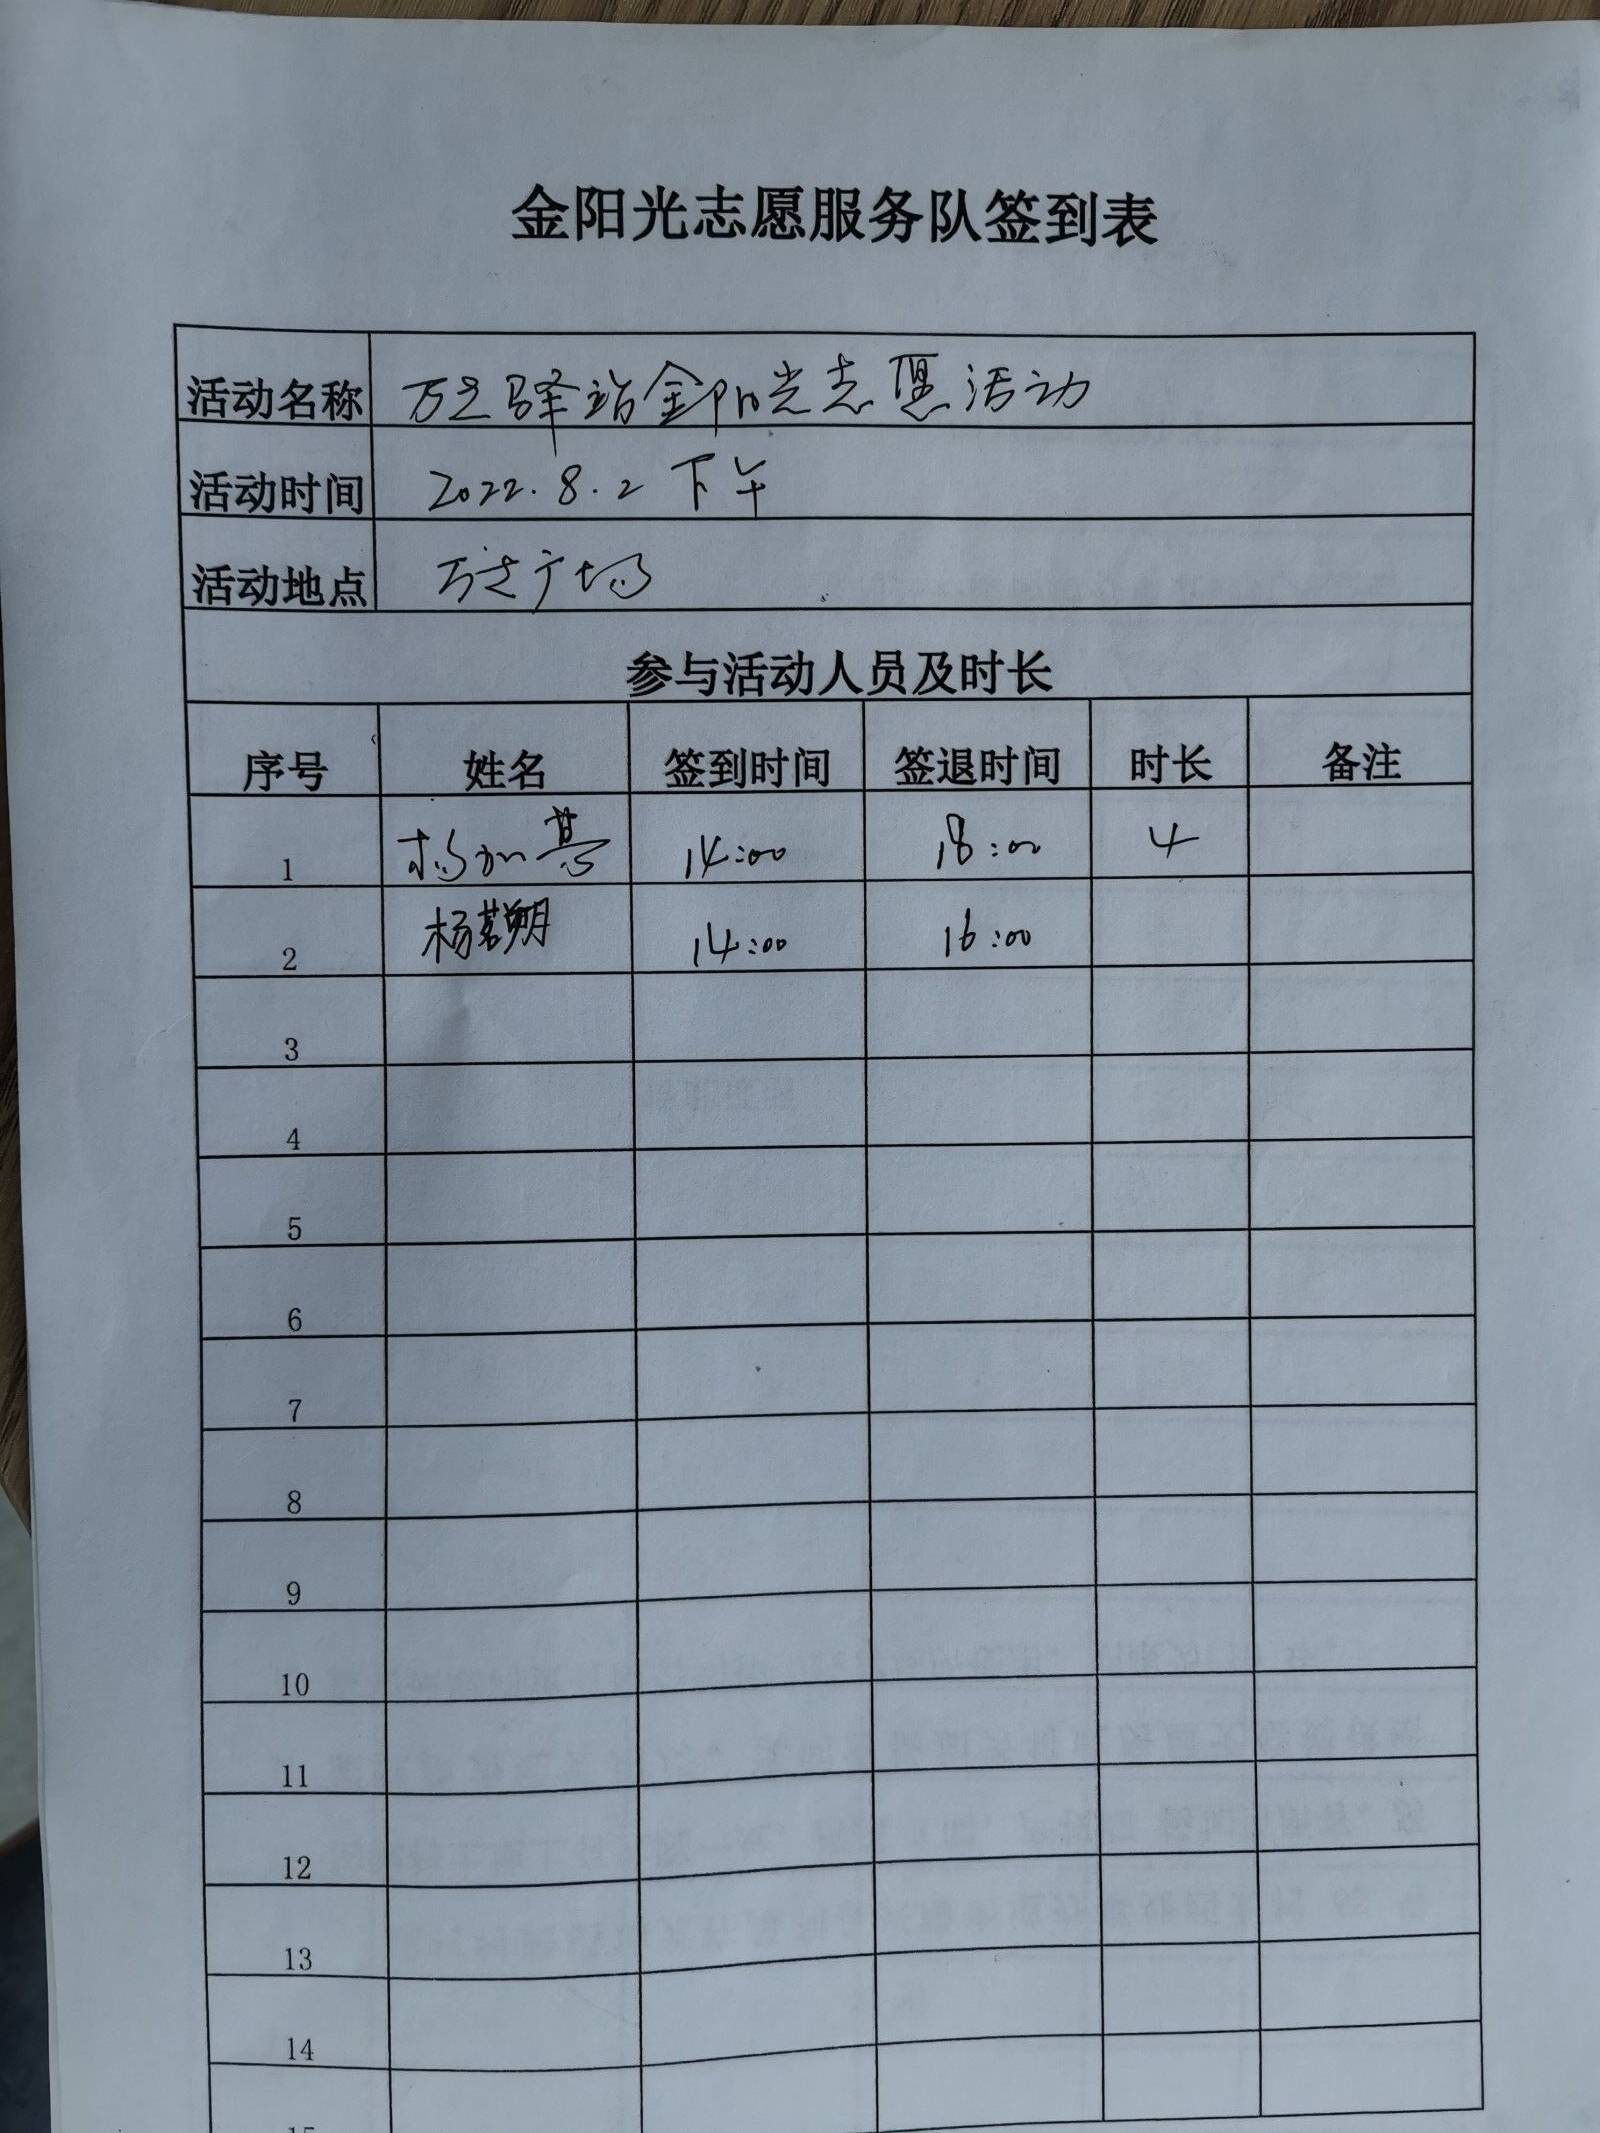 金阳光志愿服务队签到表
活动名称 万达驿站金阳光志愿活动
活动时间 2022.8.2 下午
活动地点 万达广场
参与活动人员及时长
序号 姓名 签到时间 签退时间 时长 备注
1 杨加 14:00 18:00 4
2 杨茗朔 14:00 16:00
3
4
5
6
7
8
9
10
11
12
13
14
15